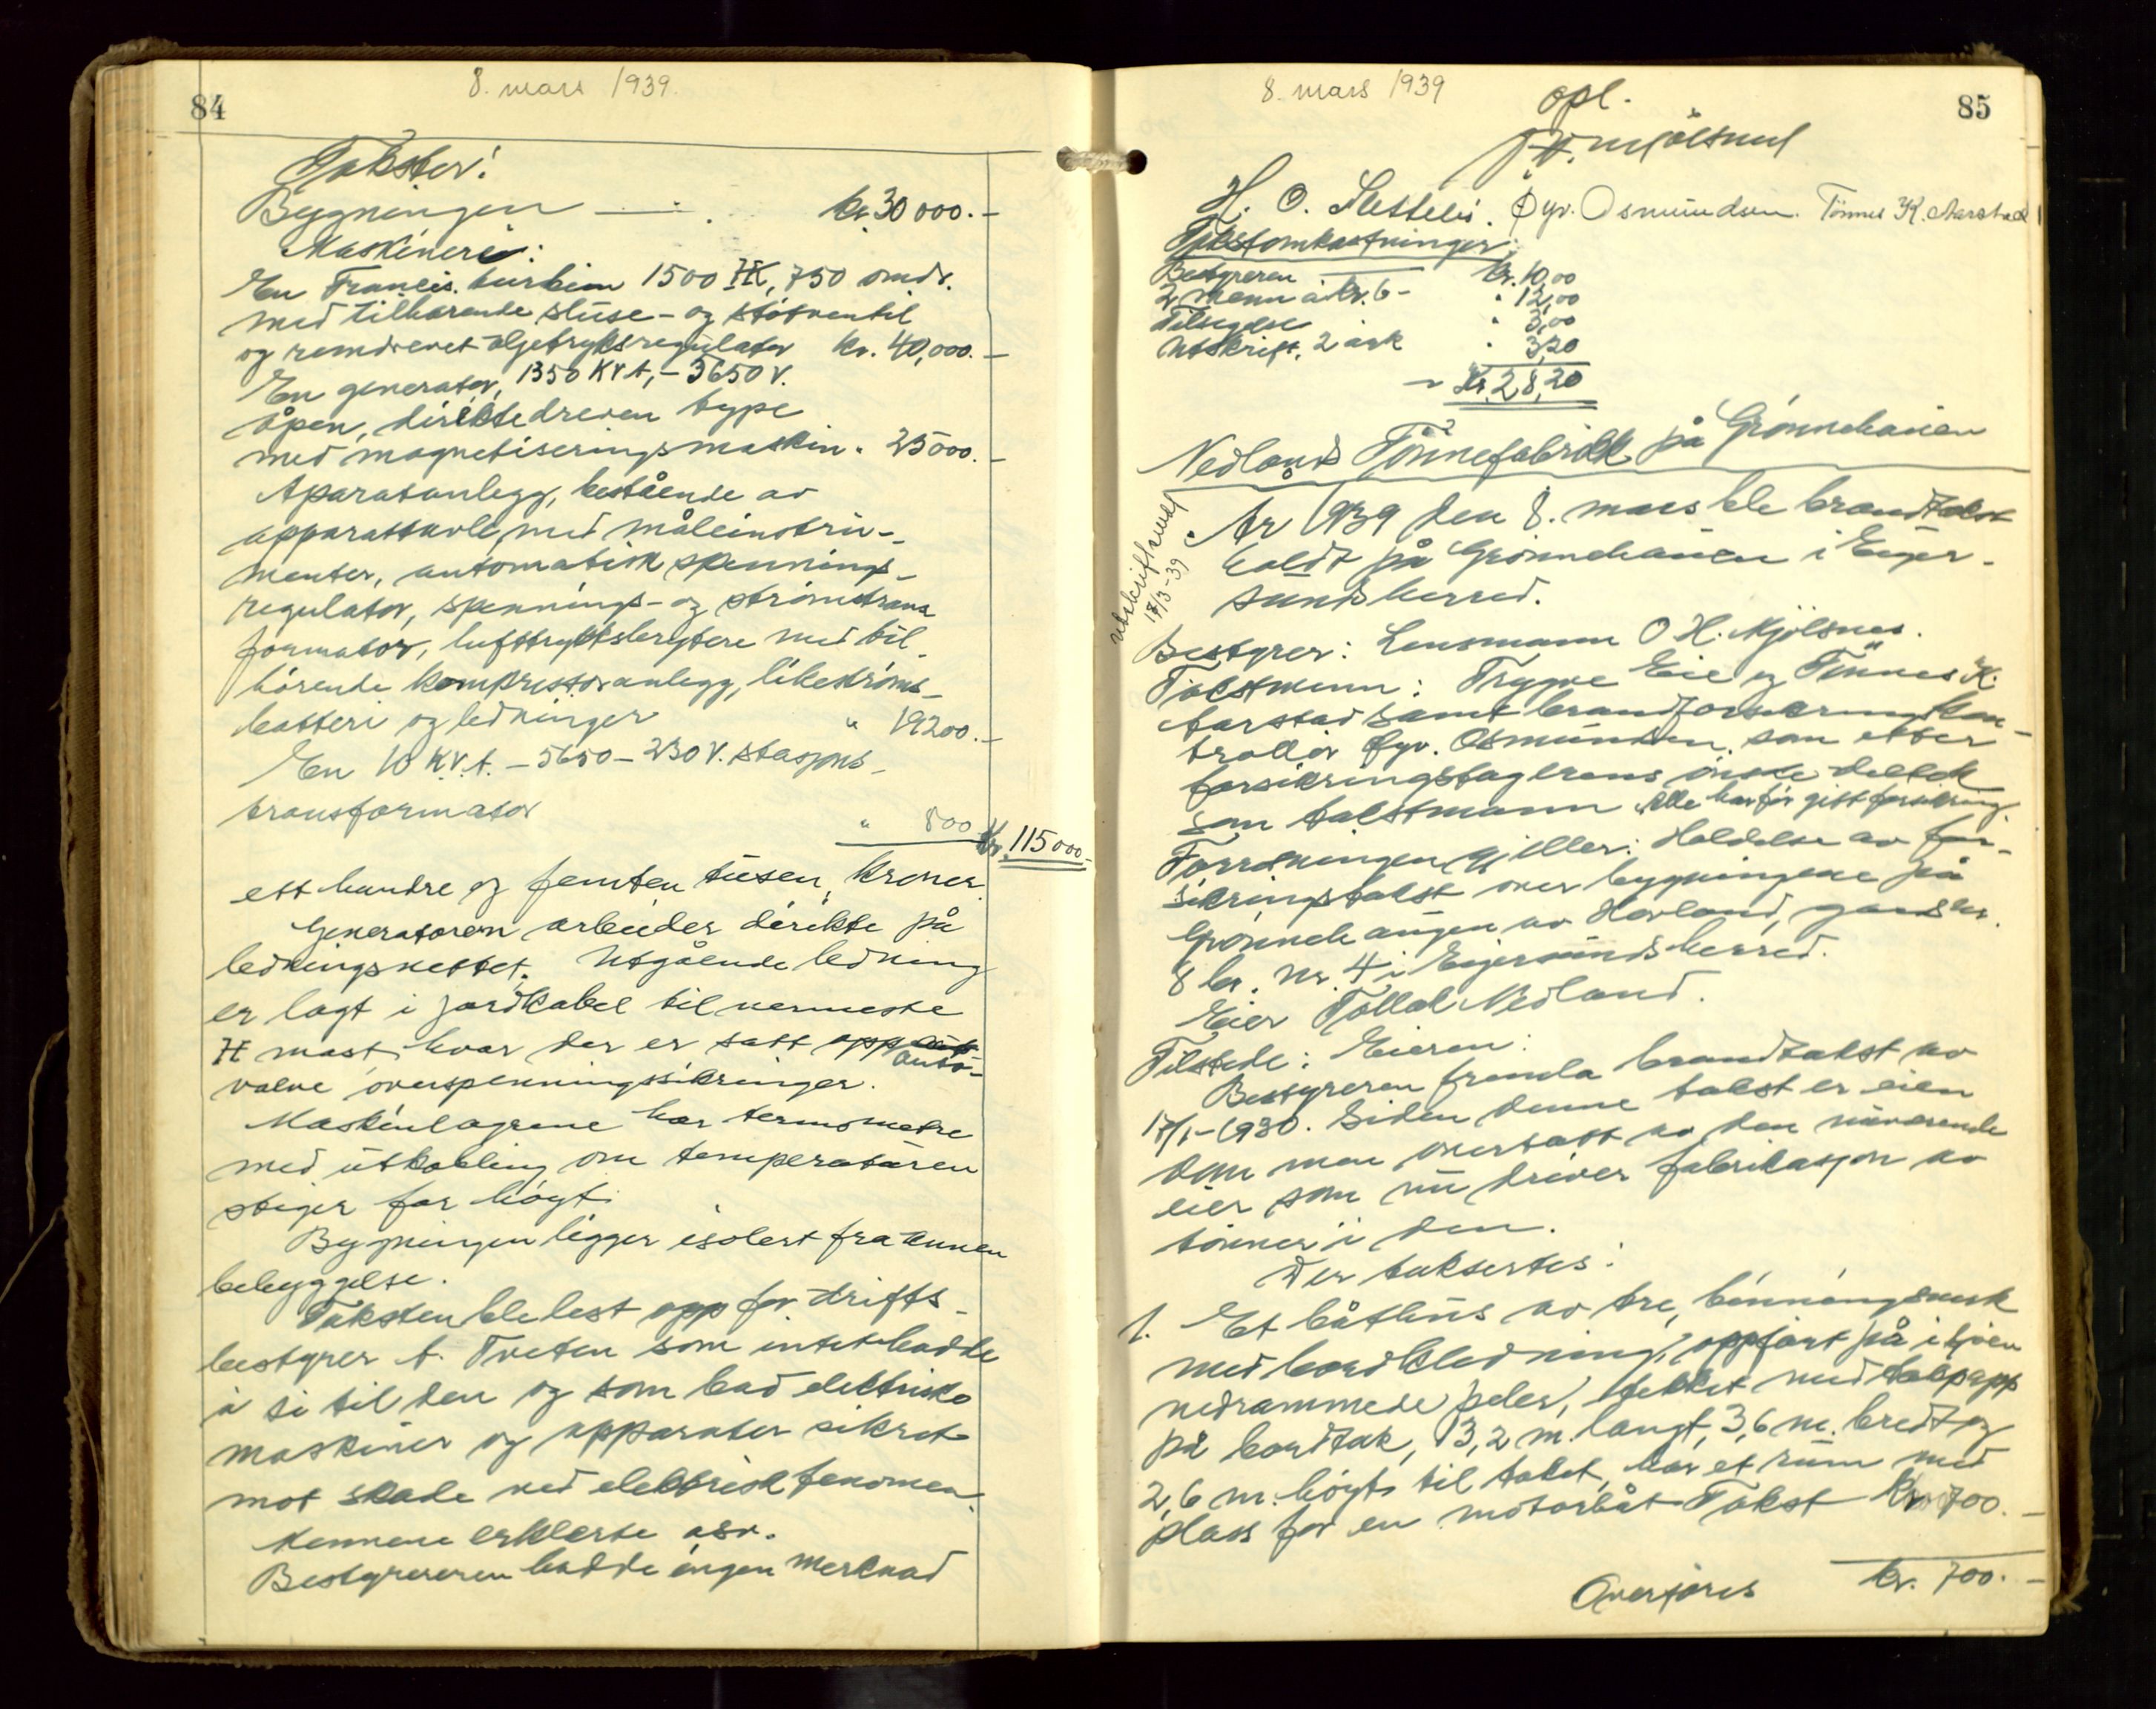 84
8. mars 1939.
Takster:
Bygningen — kr. 30 000.-
Maskineri:
En Francis turbin 1500 HK, 750 omdr.
med tilhørende sluse- og støtventil
og remdrevet oljetryksregulator kr. 40,000.-
En generator, 1350 KVA, - 5650 V.
åpen, direktedreven type
med magnetiseringsmaskin. 25000.-
Aparatanlegg, bestående av
apparattavle med måleinstru-
menter, automatisk spennings-
regulator, spennings- og strømtrans
formator, lufttryksbrytere med til-
hørende kompressoranlegg, likestrøms-
batteri og ledninger " 19200.-
En 10 KVA. - 5650 - 230 V. stasjons-
transformator " 800
Kr. 115000.-
ett hundre og femten tusen kroner
Generatoren arbeider direkte på
ledningsnettet. Utgående ledning
er lagt i jordkabel til nermeste
H mast hvor der er satt opp auto-
valve overspenningssikringer.
Maskinlagrene har termometre
med utkobling om temperaturen
stiger for høgt.
Bygningen ligger isolert fra annen
bebyggelse.
Taksten ble lest opp for drifts-
bestyrer A. Tveten som intet hadde
å si til den og som bad elektriske
maskiner og apparater sikret
mot skade ved elektrisk fenomen.
Mennene erklerte osv.
Bestyreren hadde ingen merknad
8. mars 1939
85
opl.
Mjølsnes
H. O. Øyv. Osmundsen. Tönnes K. Aarstad
Takstomkostninger:
Bestyreren Kr. 10,00
2 menn à kr. 6- " 12,00
Tilsigelse " 3,00
Utskrift, 2 ark " 3,20
Kr. 28,20
Nedlands Tönnefabrikk på Grønnehauen
Utskrift
17/3-39
År 1939 den 8. mars ble brandtakst
holdt på Grønnehauen i Eiger-
sunds herred.
Bestyrer: Lensmann O H. Mjölsnes.
Takstmenn: Trygve Eie og Tönnes K.
Aarstad samt brandforsikringskon-
trollør Øyv. Osmundsen, som etter
forsikringstagerens ønske deltok
som takstmann. Alle har før gitt forsikring.
Forretningen gjeller: Holdelse av for-
sikringstakst over bygningene på
Grønnehaugen av Hovland, gards nr.
8 br. nr. 4 i Eigersunds herred.
Eier Tollak Nedland.
Tilstede: Eieren:
Bestyreren fremla brandtakst av
17/1-1930. Siden denne takst er eien
dommen overtatt av den nuværende
eier som nu driver fabrikasjon av
tönner i den.
Der takseres:
1. Et båthus av tre, binningsverk
med bordkledning, oppført på i sjøen
nedrammede peler, tekket med takpapp
på bordtak, 13,2 m. langt, 3,6 m. bredt og
2,6 m. høgt til taket, har et rum med
plass for en motorbåt Takst Kr. 700.-
Overføres kr. 700.-